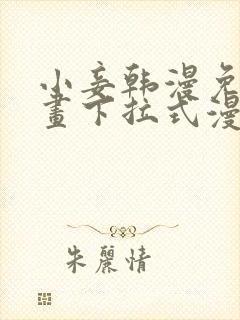 小妾韩漫免
畫下拉式漫
朱麗情